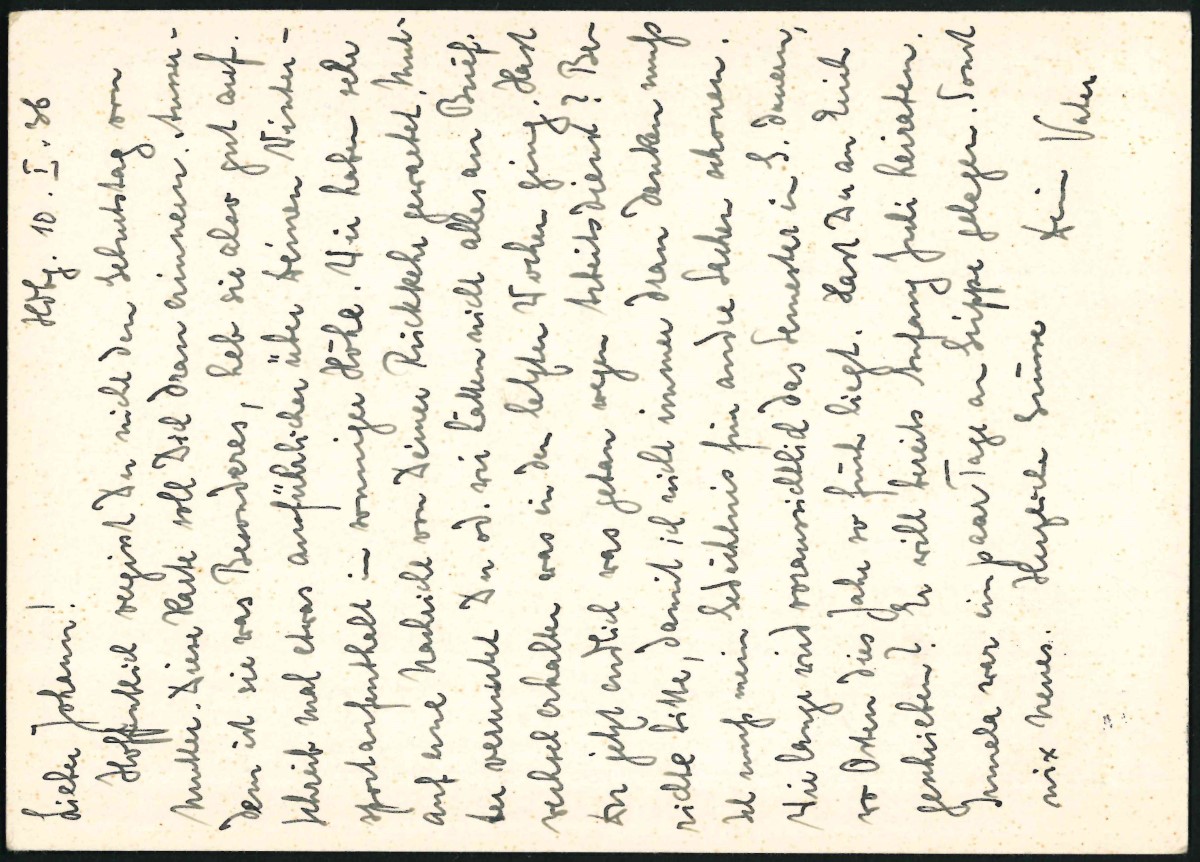 Hbg. 10. I. 36
Lieber Johann!
Hoffentlich vergisst Du nicht den Geburtstag von
Mutter. Diese Karte soll Dich dran erinnern. Ausser-
dem ist sie was Besonderes, heb sie also gut auf.
Schreib mal etwas ausführlicher über Deinen Winter-
sportaufenthalt in sonniger Höhe. Wir haben sehr
auf eine Nachricht von Deiner Rückkehr gewartet. Mut-
ter vermutet Du od. wir hätten nicht alles an Brief-
wechsel erhalten was in den letzten Wochen ging. Hast
Du jetzt endlich was getan wegen Arbeitsdienst? Be-
richte bitte, damit ich nicht immer dran denken muß
Ich muß mein Gedächtnis für andre Sachen schonen.
Wie lange wird voraussichtlich das Semester in G. dauern,
wo Ostern dies Jahr so früh liegt. Hast Du an Erich
geschrieben? Er will bereits Anfang Juli heiraten.
war ein paar Tage an Grippe gelegen. Sonst
nix neues. Herzliche Grüsse Dein Vater